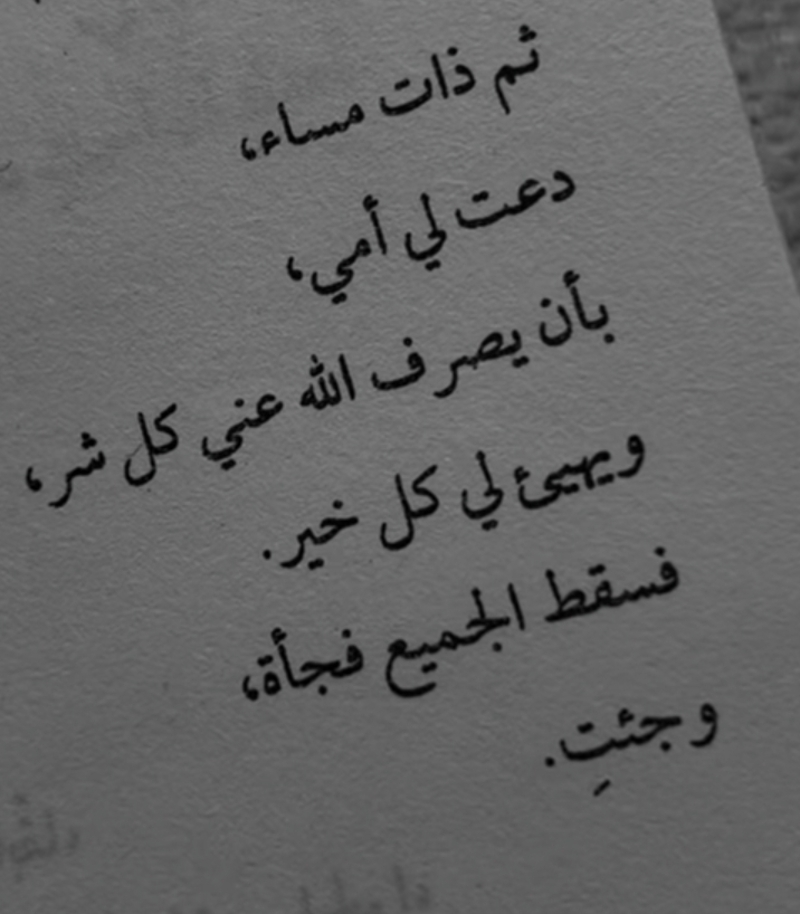 ثم ذات مساء،
دعت لي أمي،
بأن يصرف الله عني كل شر،
ويهيئ لي كل خير.
فسقط الجميع فجأة،
وجئتِ.